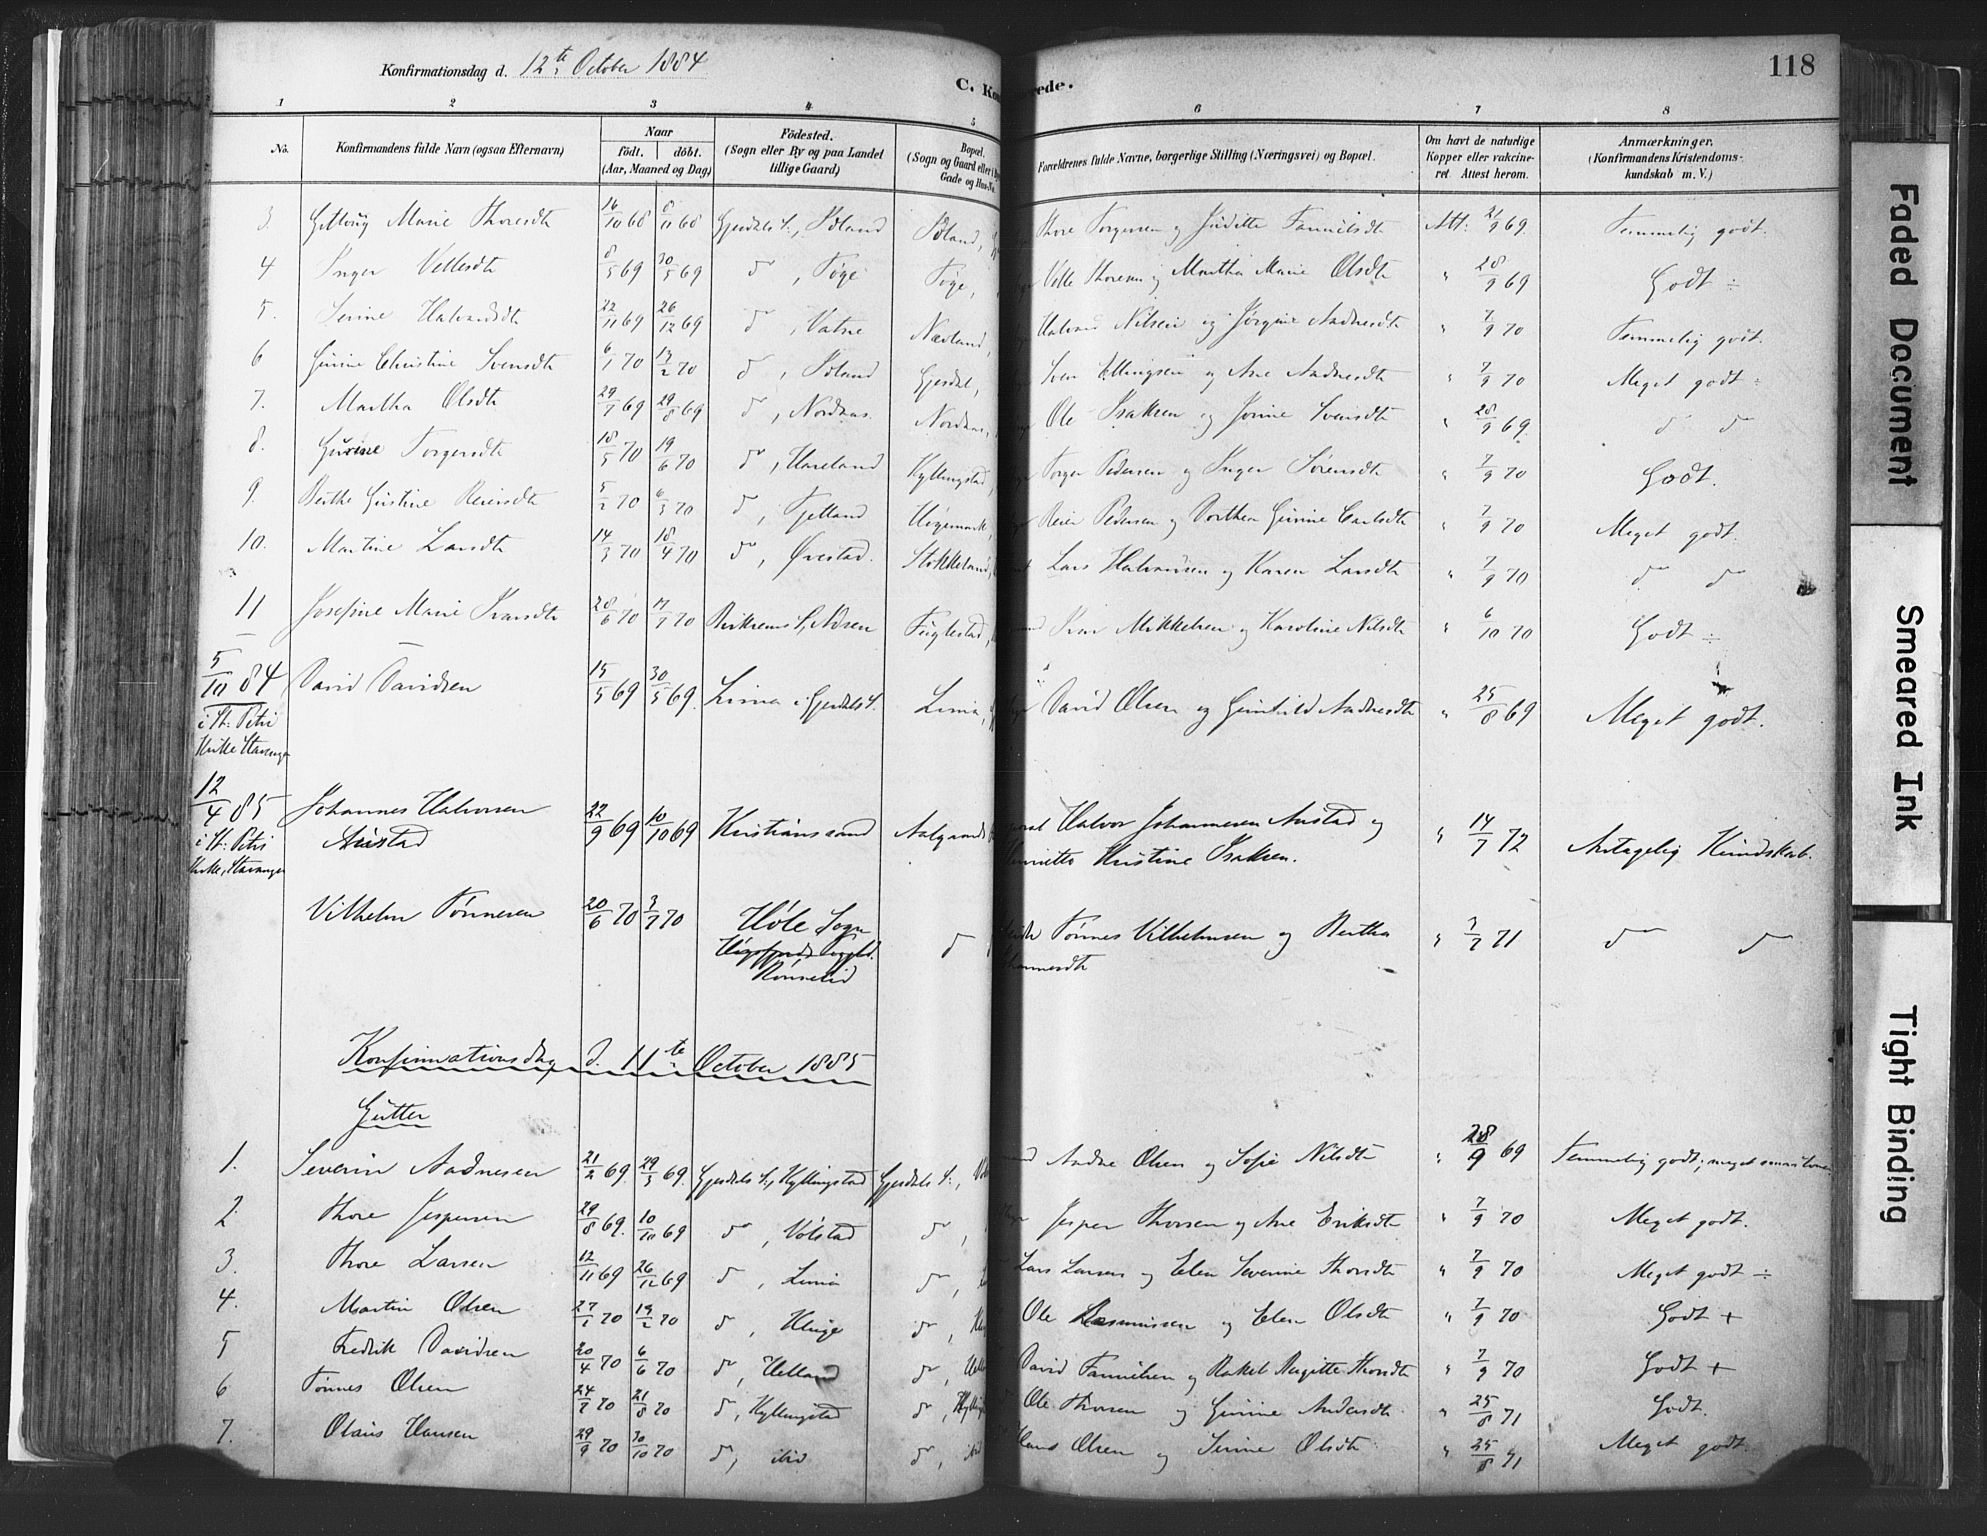 Konfirmationsdag d. 12te October 1884
118
C. Kon rede.
1 2 3 4 5 6 7 8
No. Konfirmandens fulde Navn (ogsaa Efternavn) Naar födt. döbt. (Aar, Maaned og Dag) Födested. (Sogn eller By og paa Landet tillige Gaard) Bopæl. (Sogn og Gaard eller i By Gade og Hus-No. Forældrenes fulde Navne, borgerlige Stilling (Næringsvei) og Bopæl. Om havt de naturlige Kopper eller vakcineret. Attest herom. Anmærkninger. (Konfirmandens Kristendomskundskab m. V.)
3. Marie Thoresdt 16/10 68 8/11 68 Gjesdals S., Ødland Ødland, Thore Torgersen og Att: 21/9 69. Temmelig godt.
4 Inger Vellesdt 8/5 69 30/5 69 do, Føge Føge, Velle Thoresen og Martha Marie Olsdt " 28/9 69 Godt ÷
5. Serine Halvardsdt 22/11 69 26/12 69 do, Vatne Nævland, Halvard Nilsen og Jørgine Aadnesdt " 7/9 70 Temmelig godt.
6 Gurine Christine Svensdt 6/1 70 13/2 70 do, Ødland Gjesdal, Sven Ellingsen og Ane Aadnesdt " 7/9 70 Meget godt ÷
7. Martha Olsdt 29/7 69 29/8 69 do, Nordraas. Nordraas, Ole Isaksen og Jorine Svensdt " 28/9 69. do do
8. Gurine Torgersdt 18/5 70 19/6 70 do, Hareland Kyllingstad, Torger Pedersen og Inger Sørensdt " 7/9 70 Godt.
9. Berthe Gustine Reiersdt 5/2 70 6/3 70 do, Fjelland Reier Pedersen og Dorthea Gurine Carlsdt " 7/9 70 Meget godt.
10. Martine Larsdt 14/3 70 18/4 70 do, Øvestad. Stokkeland, Lars Halvardsen og Karen Larsdt " 7/9 70 do do
11 Josefine Marie Ivarsdt 28/6 70 17/7 70 Birkrems S, Fuglestad, Ivar Mikkelsen og Karoline Nilsdt " 6/10 70 Godt ÷
5/10 84 David Davidsen 15/5 69 30/5 69. Lima i Gjesdals S. Lima, David Olsen og Gunhild Aadnesdt " 25/8 69 Meget godt.
i St. Petri
Kirke Stavanger
12/4 85 Johannes Halvorsen 22/9 69 10/10 69 Kristianssand Aalgaard Halvor Johannesen Austad og " 14/7 72 Antagelig Kundskab.
i St. Petri Austad Kristine Isaksen.
Kirke, Stavanger
Vilhelm Tønnesen 20/6 70 3/7 70 Høle Sogn do Tønnes Vilhelmsen og Bertha " 3/7 71 do do
Høgsfjords Prgjld.
Konfirmationsdag d. 11te October 1885
Gutter
1. Severin Aadnesen 21/2 69. 29/3 69. Gjesdals S., Kyllingstad Gjesdals S., Aadne Olsen og Sofie Nilsdt " 28/9 69 Temmelig godt;
2 Thore Jespersen 29/8 69. 10/10 69 do, Vølstad do, Jesper Thorsen og Ane Eriksdt " 7/9 70 Meget godt.
3. Thore Larsen 12/11 69 26/12 69 do, Lima do, Lars Larsen og Elen Severine Thorsdt " 7/9 70 Meget godt ÷
4. Martin Olsen 27/1 70 19/2 70 do, Kluge do, Ole Rasmussen og Elen Olsdt " 7/9 70 Godt +
5 Fredrik Davidsen 20/4 70 6/6 70 do, Helland do, David Tannilsen og Rakel Birgitte Thorsdt " 7/9 70 Godt +
6 Tønnes Olsen 24/7 70 21/8 70 do, Kyllingstad do, Ole Thorsen og Gurine Andersdt " 25/8 71 Godt.
7. Olaus Hansen 29/9 70 30/10 70 do, ibid do, ibid Hans Olsen og Serine Olsdt " 25/8 71 Meget godt.
Faded Document
Smeared Ink
Tight Binding